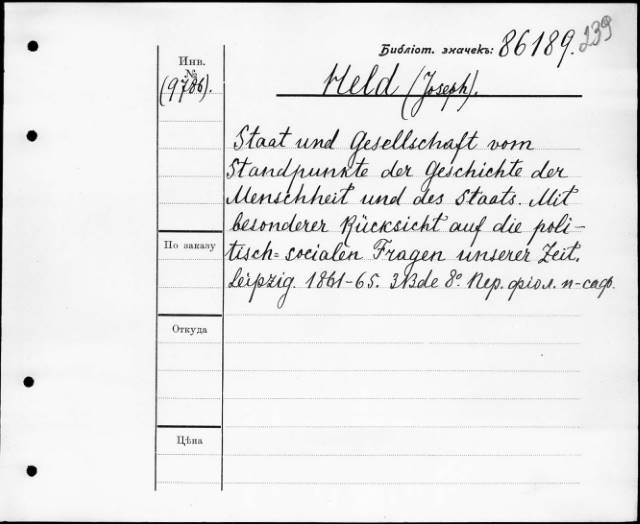 Библіот. значекъ: 86189. 239
Инв. №
(9786).
Held (Joseph).
Staat und Gesellschaft vom
Standpunkte der Geschichte der
Menschheit und des Staats. Mit
besonderer Rücksicht auf die poli-
tisch=socialen Fragen unserer Zeit.
Leipzig. 1861-65. 3 Bde 8º. Пер. фіол. п-саф.
По заказу
Откуда
Цѣна